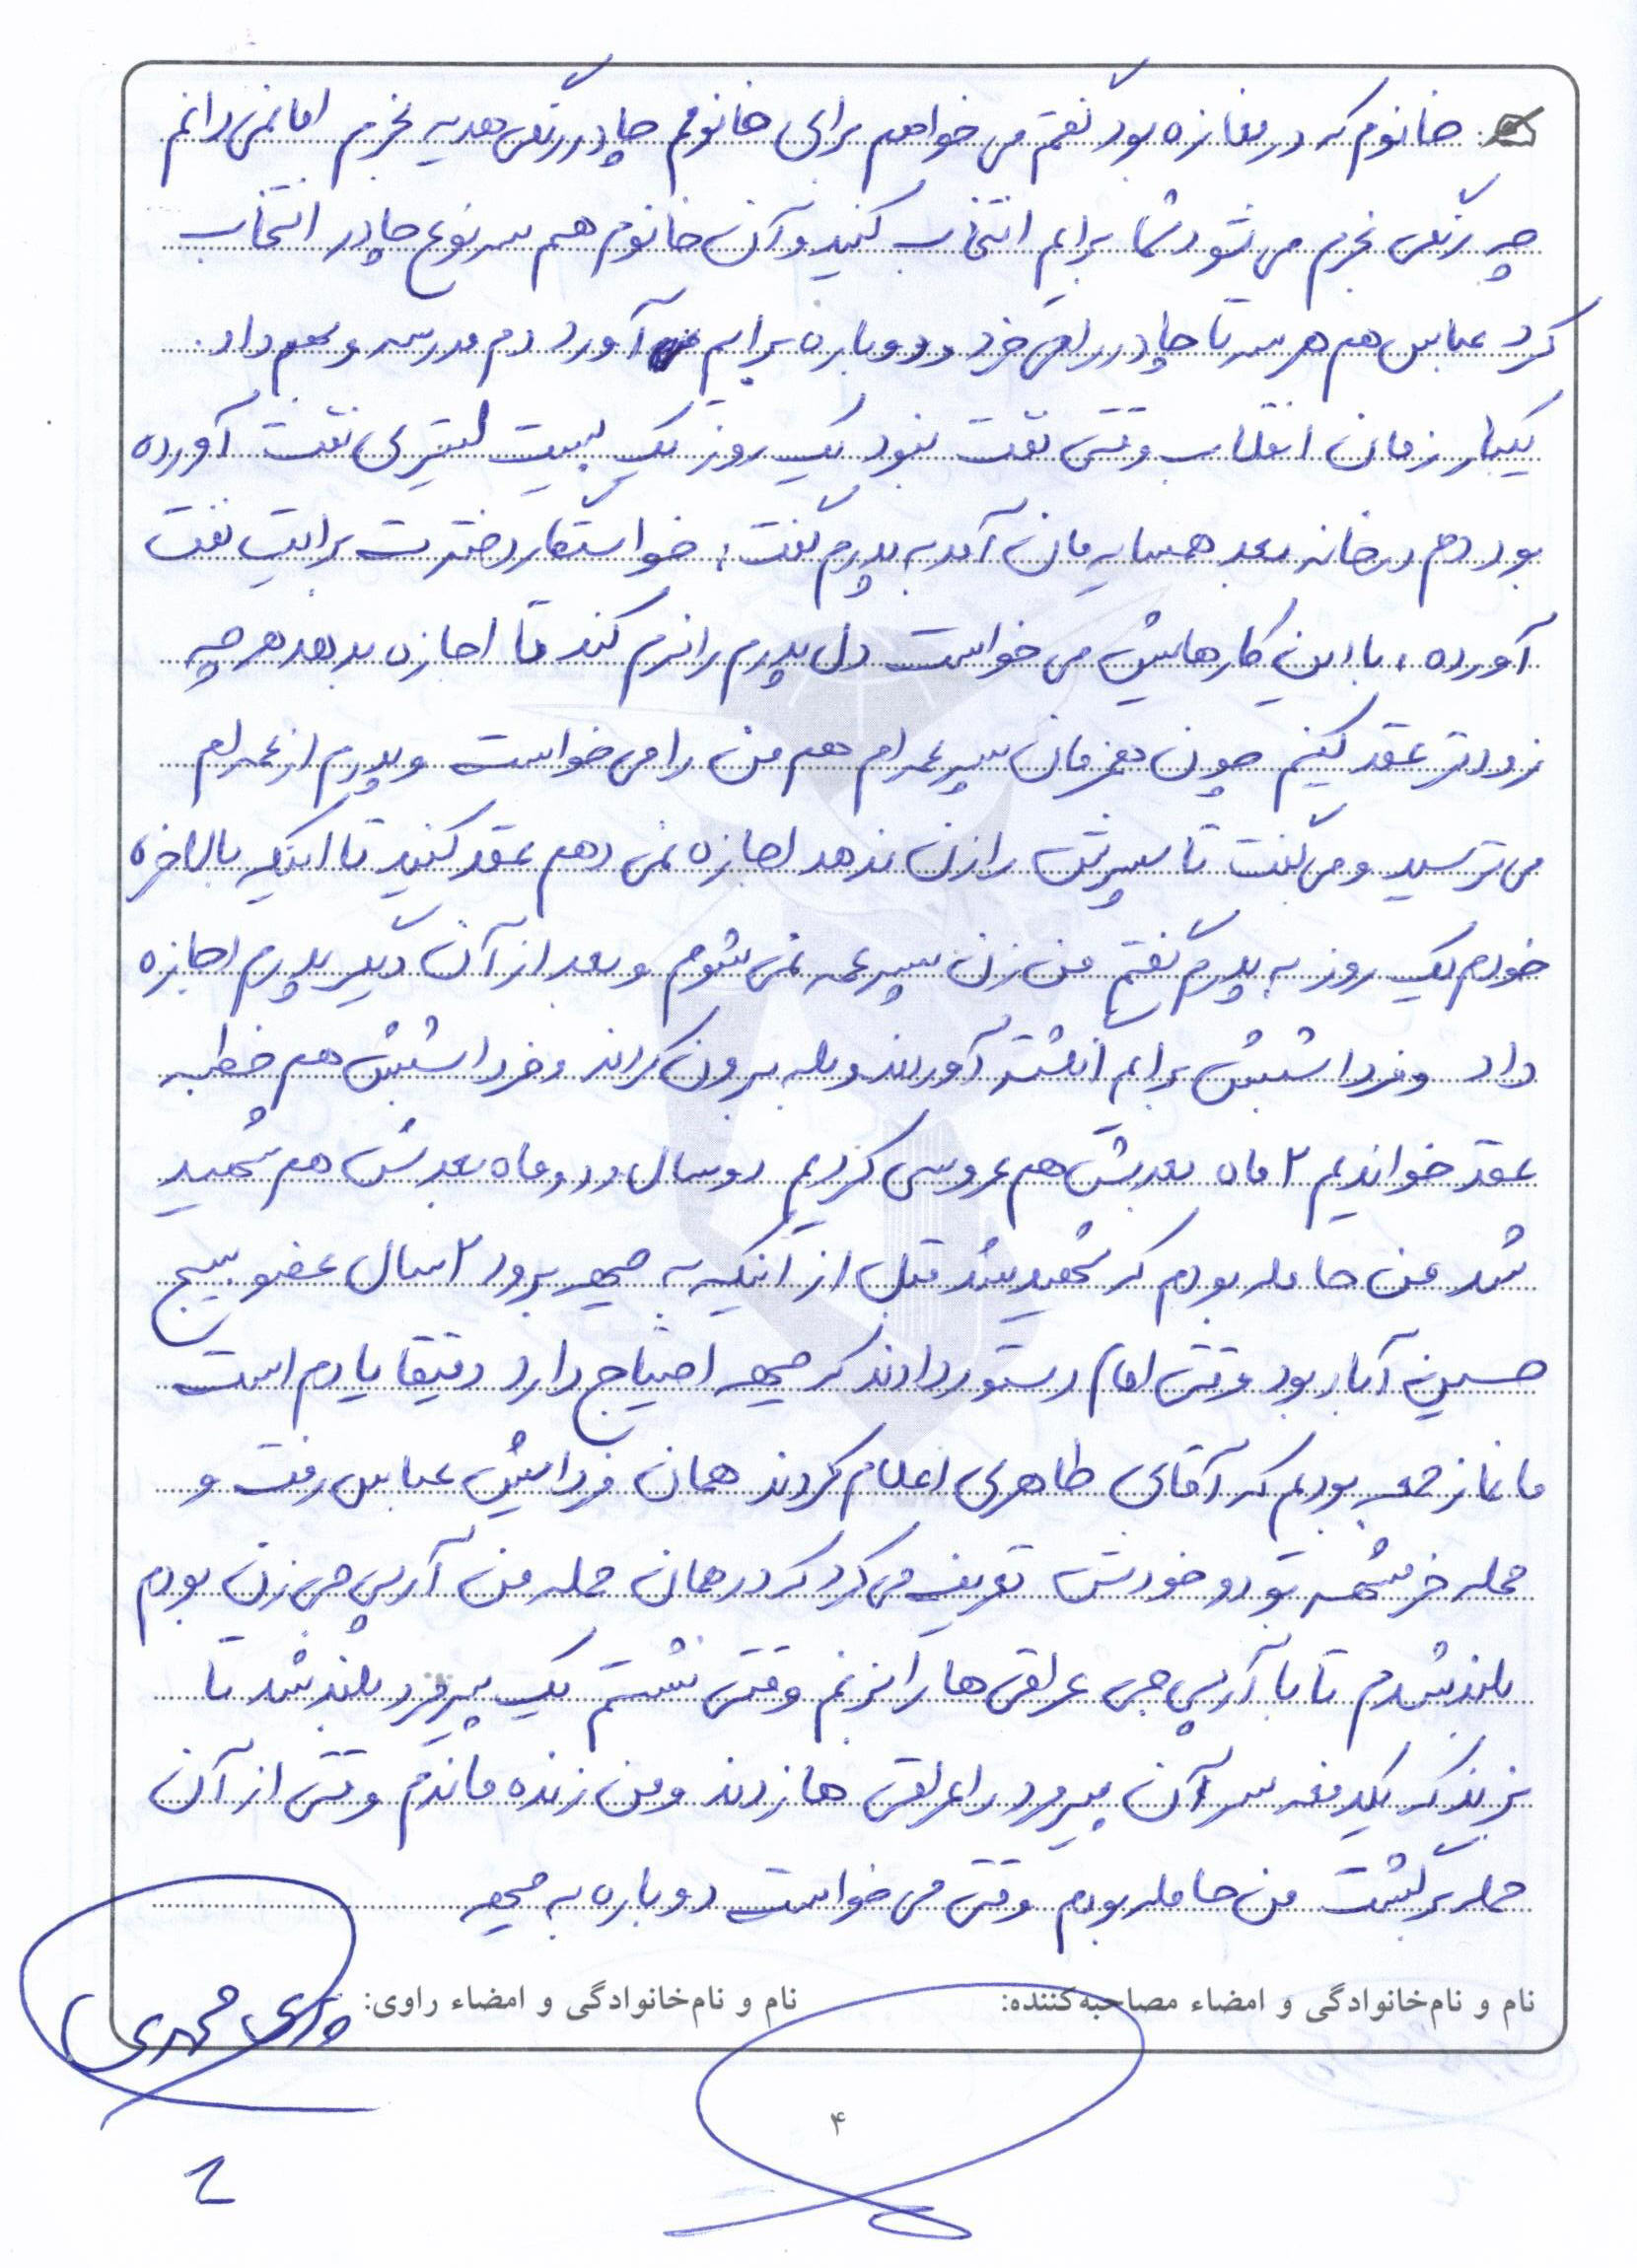 خانومم که در مغازه بود گفتم می خواهم برای خانومم چادر رنگی هدیه بخرم اما نمی دانم
چه رنگی بخرم می شود شما برایم انتخاب کنید و آن خانوم هم سه نوع چادر انتخاب
کرد عباس هم هر سه تا چادر رنگی خرد و دوباره برایم آورد دم مدرسه و بهم داد.
یکبار زمان انقلاب وقتی نفت نبود یک روز یک بیست لیتری نفت آورده
بود دم درخانه بعد همسایه مان آمد به پدرم گفت: خواستگار دخترت برایت نفت
آورده، با این کارهایش می خواست دل پدرم را نرم کند تا اجازه بدهد هر چه
زودتر عقد کنیم چون همزمان پسر عمه ام هم من را می خواست و پدرم از عمه ام
می ترسید و می گفت تا پسرش را زن ندهد اجازه نمی دهم عقد کنید تا اینکه بالاخره
خودم یک روز به پدرم گفتم من زن پسر عمه نمی شوم و بعد از آن دیگر پدرم اجازه
داد و فردا شبش برایم انگشتر آوردند و بله برون کردند و فردا شبش هم خطبه
عقد خواندیم ۲ ماه بعدش هم عروسی کردیم دوسال و دو ماه بعدش هم شهید
شد من حامله بودم که شهید شد قبل از اینکه به جبهه برود ۲ سال عضو بسیج
حسین آباد بود وقتی امام دستور دادند که جبهه احتیاج دارد دقیقا یادم است
ما نماز جمعه بودیم که آقای طاهری اعلام کردند همان فردایش عباس رفت و
حمله خرمشهر بود و خودش تعریف می کرد که در همان حمله من آرپی جی زن بودم
بلند شدم تا با آرپی جی عراقی ها را بزنم وقتی نشستم یک پیرمرد بلند شد تا
بزند که یکدفعه سر آن پیرمرد را عراقی ها زدند و من زنده ماندم وقتی از آن
حمله برگشت من حامله بودم وقتی می خواست دوباره به جبهه
نام و نام‌خانوادگی و امضاء مصاحبه‌کننده:
نام و نام‌خانوادگی و امضاء راوی:
۴